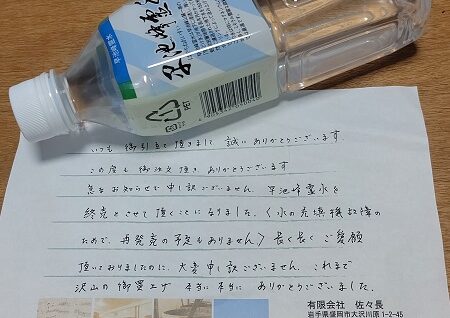 早池峰霊水
早池峰霊
PET
いつも 御引立て頂きまして 誠に ありがとうございます
この度も 御注文頂き ありがとうございます
急なお知らせで 申し訳ございません。早池峰霊水を
終売とさせて頂くことになりました。(水の充填機故障の
ためで、再発売の予定もありません) 長く長く ご愛顧
頂いておりましたのに、大変申し訳ございません。これまで
沢山の御買上げ 本当に本当に ありがとうございました。
有限会社 佐々長
岩手県盛岡市大沢川原1-2-45